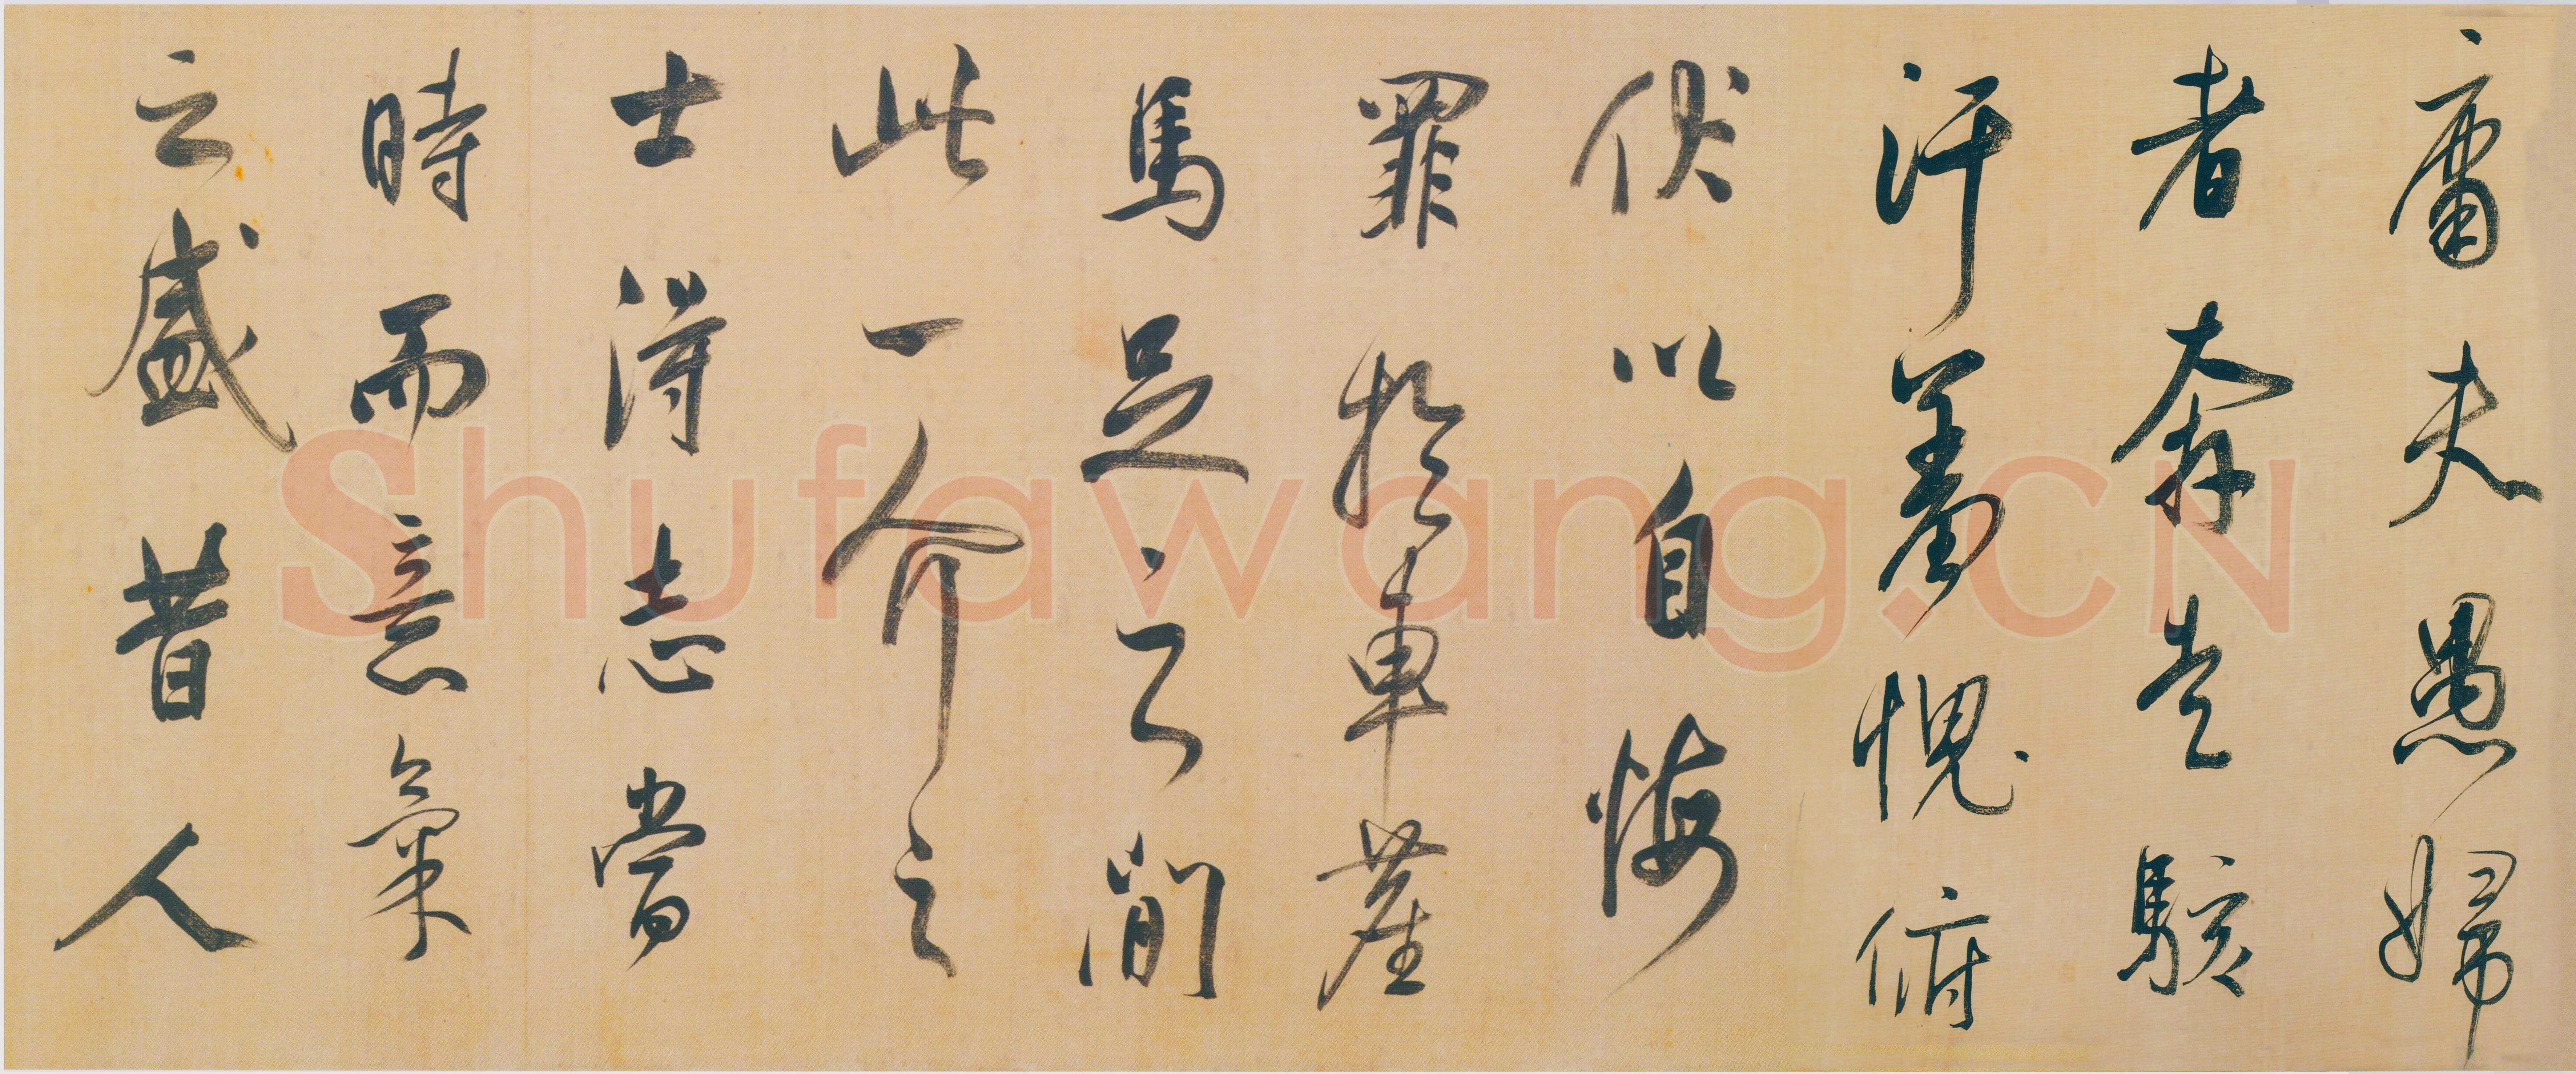 庸夫愚婦
者奔走駭
汗羞愧俯
伏以自悔
罪於車塵
馬足之閒
此一介之
士得志當
時而意氣
之盛昔人
Shufawang.CN